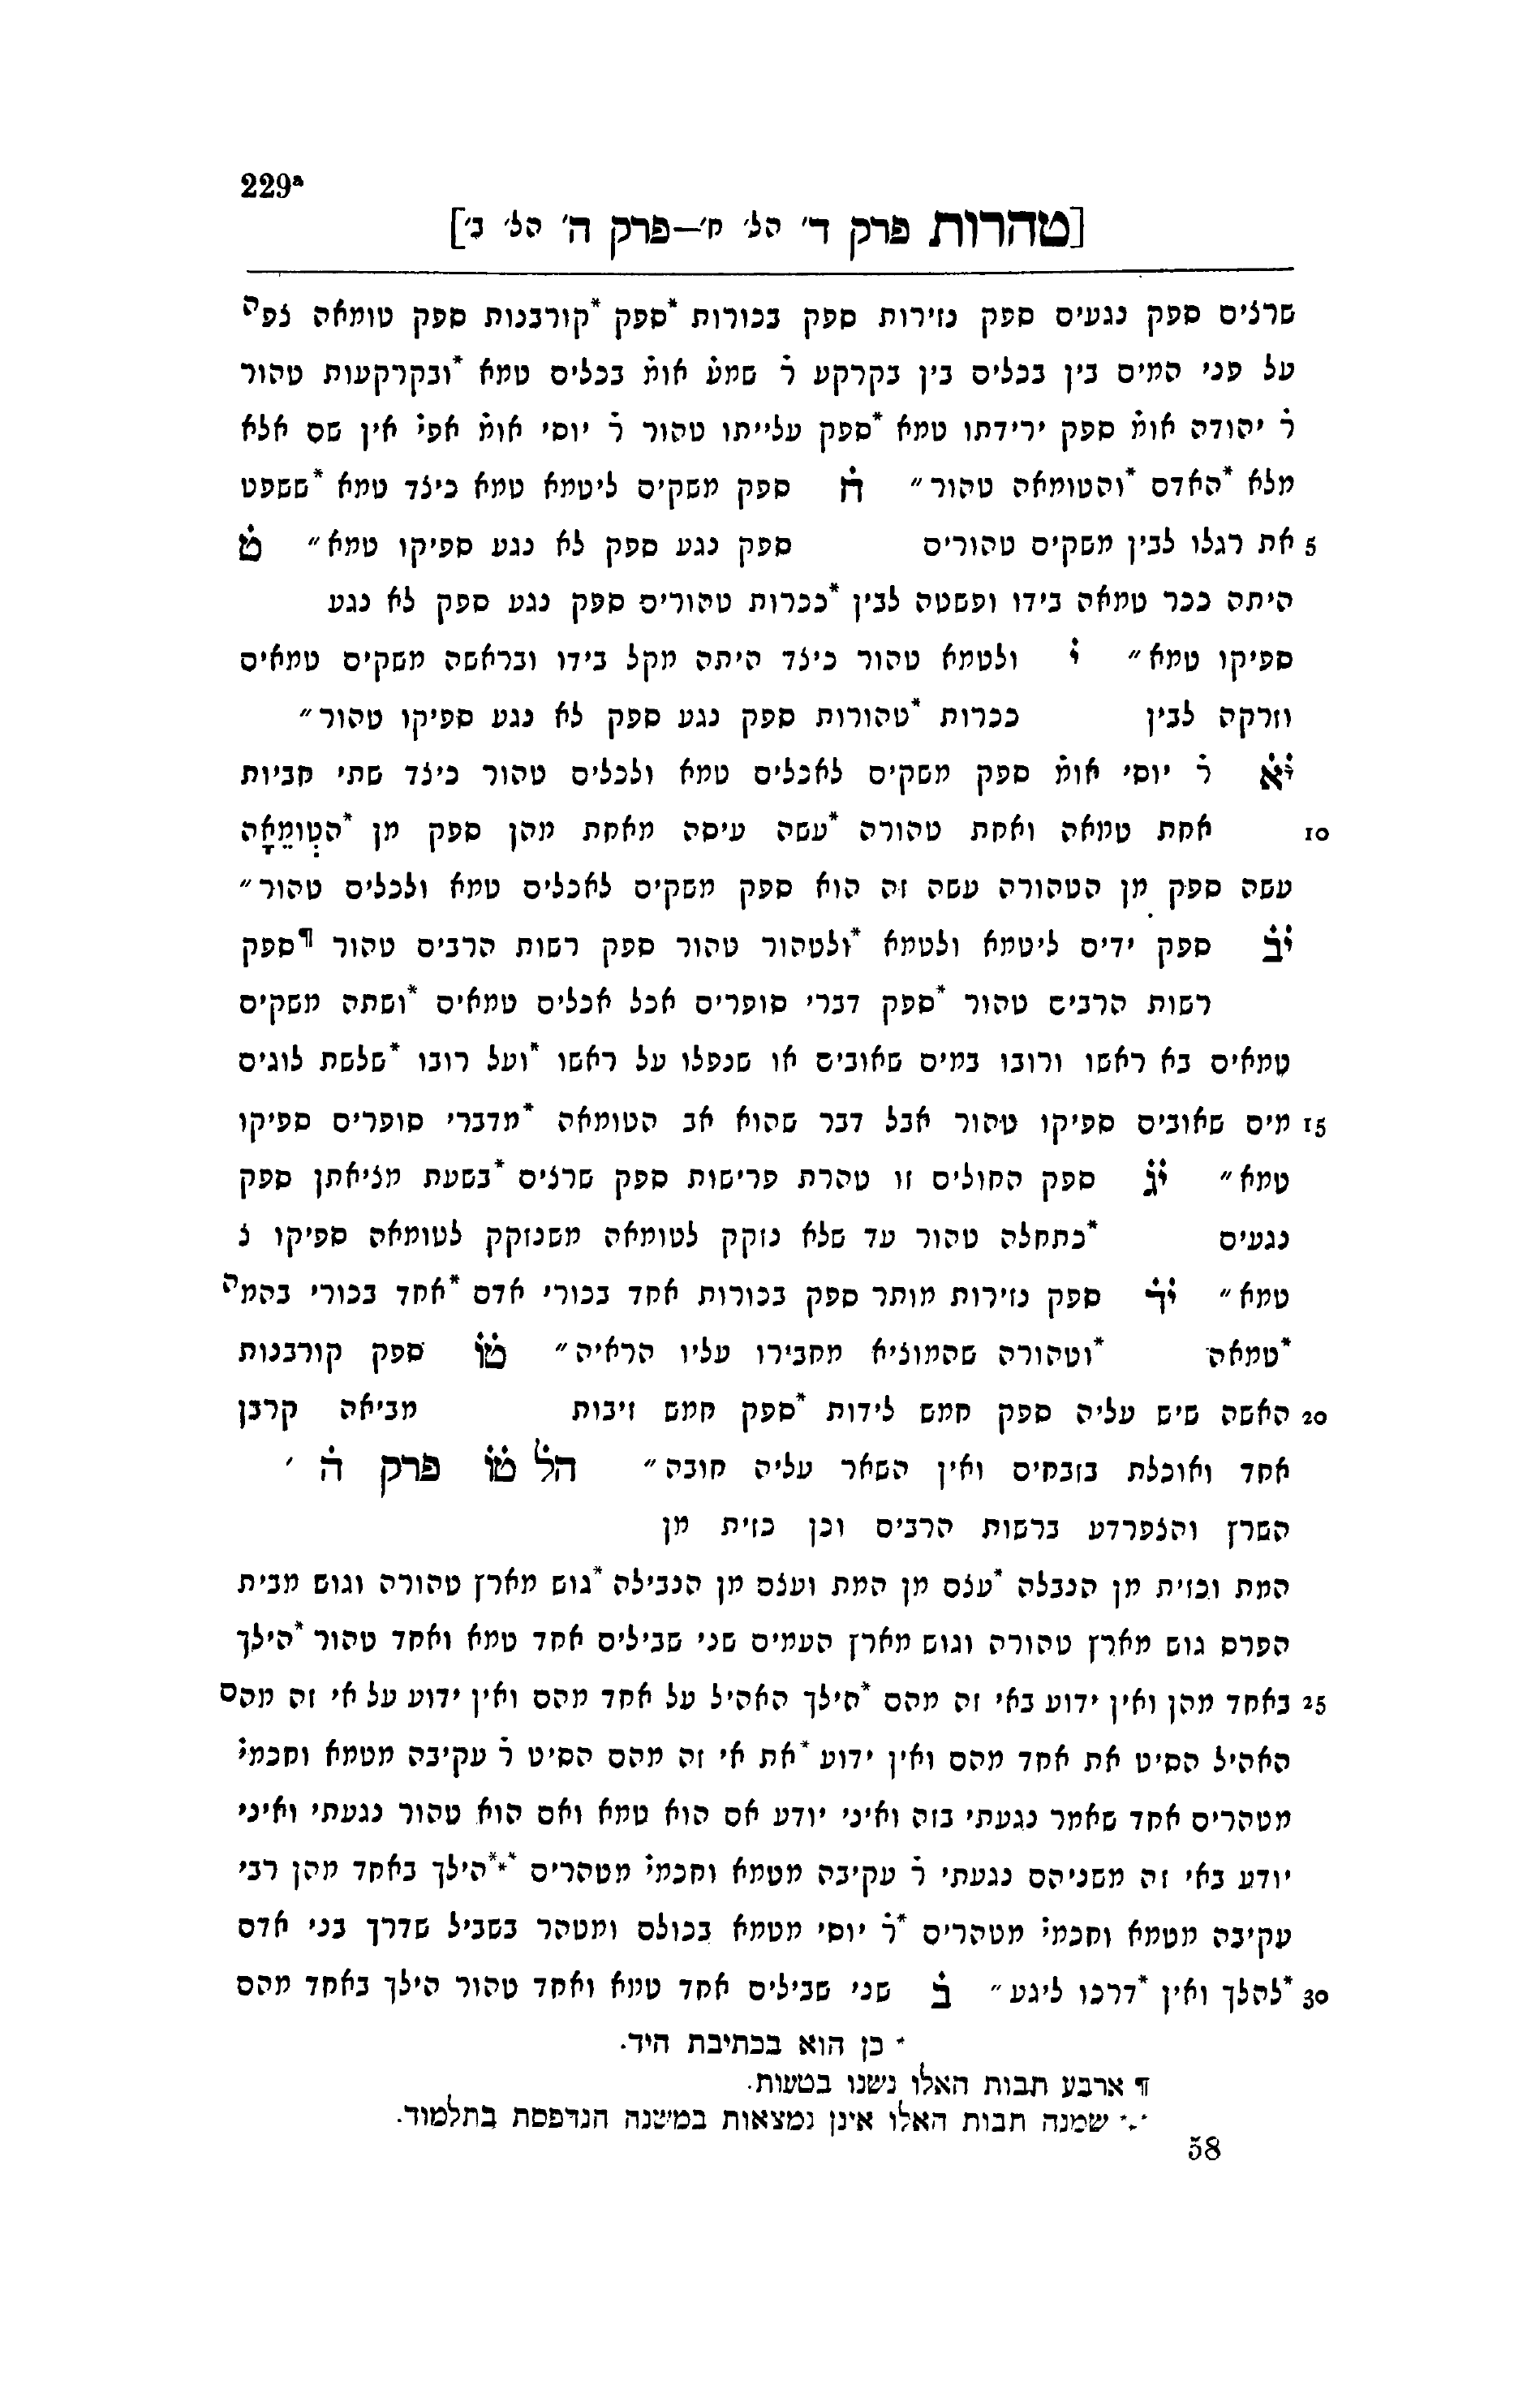 229ª
[טהרות פרק ד׳ הל׳ ח׳—פרק ה׳ הל׳ ב׳]
שרצים ספק נגעים ספק נזירות ספק בכורות *ספק *קורבנות ספק טומאה צפה
על פני המים בין בכלים בין בקרקע ר̇ שמע̇ אומ̇ בכלים טמא *ובקרקעות טהור
ר̇ יהודה אומ̇ ספק ירידתו טמא *ספק עלייתו טהור ר̇ יוסי אומ̇ אפי̇ אין שם אלא
מלא *האדם *והטומאה טהור״ ח̇ ספק משקים ליטמא טמא כיצד טמא *שפשט
5 את רגלו לבין משקים טהורים ספק נגע ספק לא נגע ספיקו טמא״ ט̇
היתה ככר טמאה בידו ופשטה לבין *ככרות טהורים ספק נגע ספק לא נגע
ספיקו טמא״ י̇ ולטמא טהור כיצד היתה מקל בידו ובראשה משקים טמאים
וזרקה לבין ככרות *טהורות ספק נגע ספק לא נגע ספיקו טהור״
י̇א̇ ר̇ יוסי אומ̇ ספק משקים לאכלים טמא ולכלים טהור כיצד שתי חביות
10 אחת טמאה ואחת טהורה *עשה עיסה מאחת מהן ספק מן *הטְּומֵאָה
עשה ספק מן הטהורה עשה זה הוא ספק משקים לאכלים טמא ולכלים טהור״
י̇ב̇ ספק ידים ליטמא ולטמא *ולטהור טהור ספק רשות הרבים טהור ¶ספק
רשות הרבים טהור *ספק דברי סופרים אכל אכלים טמאים *ושתה משקים
טמאים בא ראשו ורובו במים שאובים או שנפלו על ראשו *ועל רובו *שלשת לוגים
15 מים שאובים ספיקו טהור אבל דבר שהוא אב הטומאה *מדברי סופרים ספיקו
טמא״ י̇ג̇ ספק החולים זו טהרת פרישות ספק שרצים *בשעת מציאתן ספק
נגעים *כתחלה טהור עד שלא נזקק לטומאה משנזקק לטומאה ספיקו צ
טמא״ י̇ד̇ ספק נזירות מותר ספק בכורות אחד בכורי אדם *אחד בכורי בהמה
*טמאה *וטהורה שהמוציא מחבירו עליו הראיה״ ט̇ו̇ ספק קורבנות
20 האשה שיש עליה ספק חמש לידות *ספק חמש זיבות מביאה קרבן
אחד ואוכלת בזבחים ואין השאר עליה חובה״ הל̇ ט̇ו̇ פרק ה̇ ׳
השרץ והצפרדע ברשות הרבים וכן כזית מן
המת וכזית מן הנבלה *עצם מן המת ועצם מן הנבילה *גוש מארץ טהורה וגוש מבית
הפרס גוש מארץ טהורה וגוש מארץ העמים שני שבילים אחד טמא ואחד טהור *הילך
25 באחד מהן ואין ידוע באי זה מהם *חילך האהיל על אחד מהם ואין ידוע על אי זה מהם
האהיל הסיט את אחד מהם ואין ידוע *את אי זה מהם הסיט ר̇ עקיבה מטמא וחכמי̇
מטהרים אחד שאמר נגעתי בזה ואיני יודע אם הוא טמא ואם הוא טהור נגעתי ואיני
יודע באי זה משניהם נגעתי ר̇ עקיבה מטמא וחכמי̇ מטהרים ***הילך באחד מהן רבי
עקיבה מטמא וחכמי̇ מטהרים *ר̇ יוסי מטמא בכולם ומטהר בשביל שדרך בני אדם
30 *להלך ואין *דרכו ליגע״ ב̇ שני שבילים אחד טמא ואחד טהור הילך באחד מהם
* כן הוא בכתיבת היד.
¶ ארבע תבות האלו נשנו בטעות.
*** שמנה תבות האלו אינן נמצאות במשנה הנדפסת בתלמוד.
58